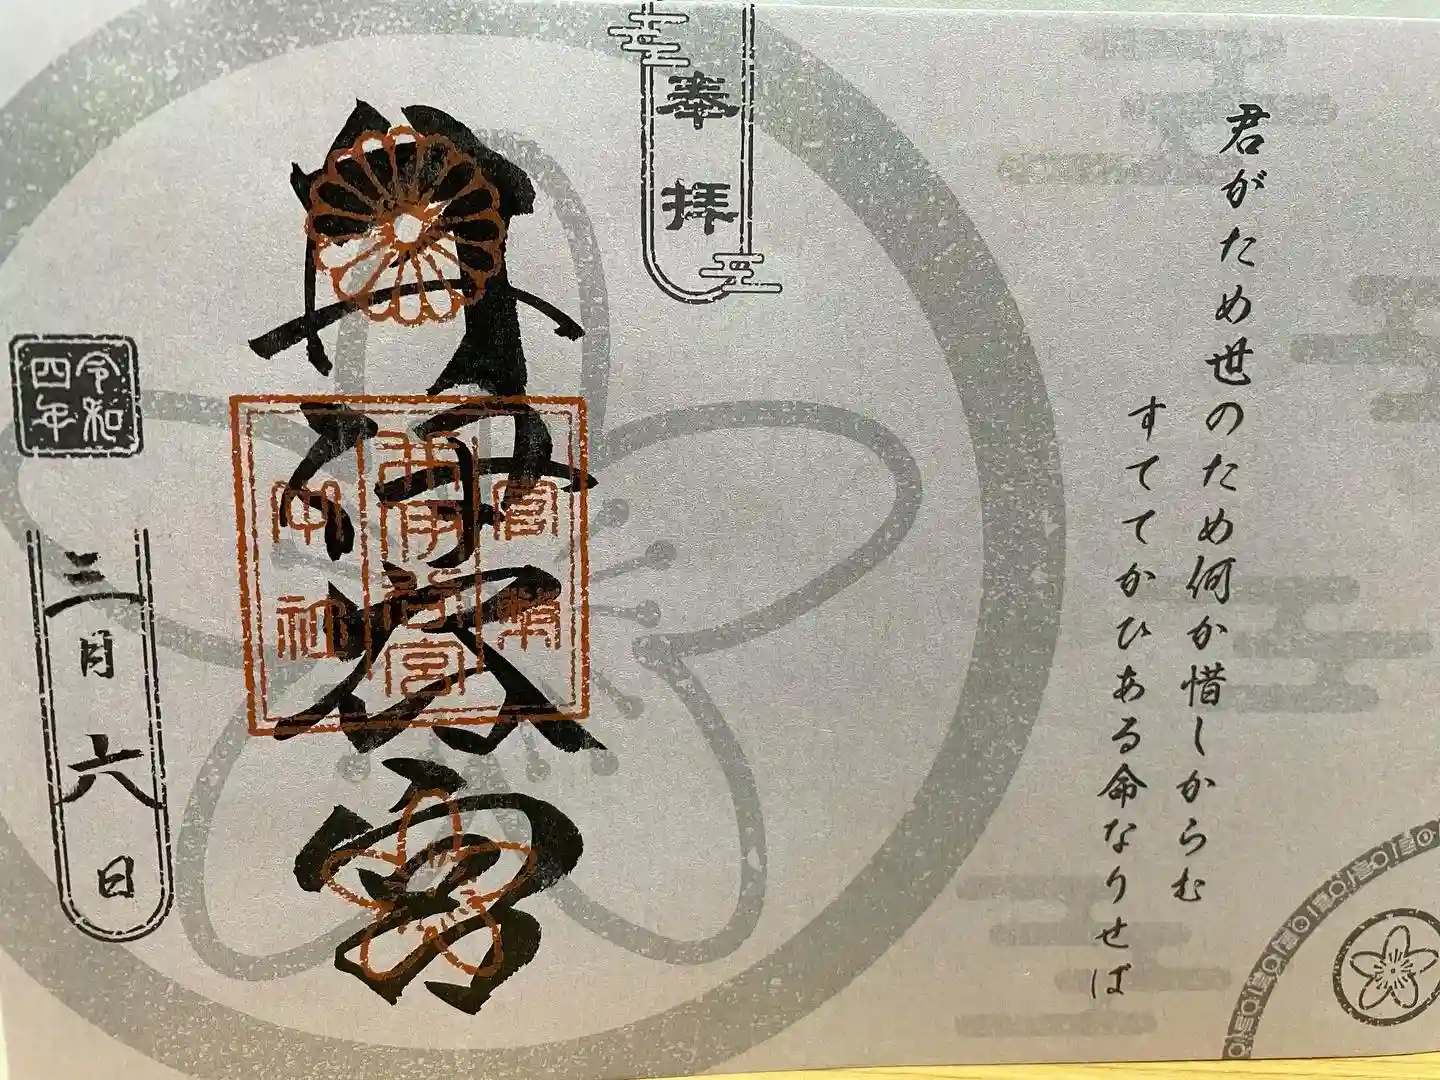 君がため世のため何か惜しからむ
すててかひある命なりせば
奉拝
井伊谷宮
官幣
井伊谷宮
中社
令和
四年
三月六日